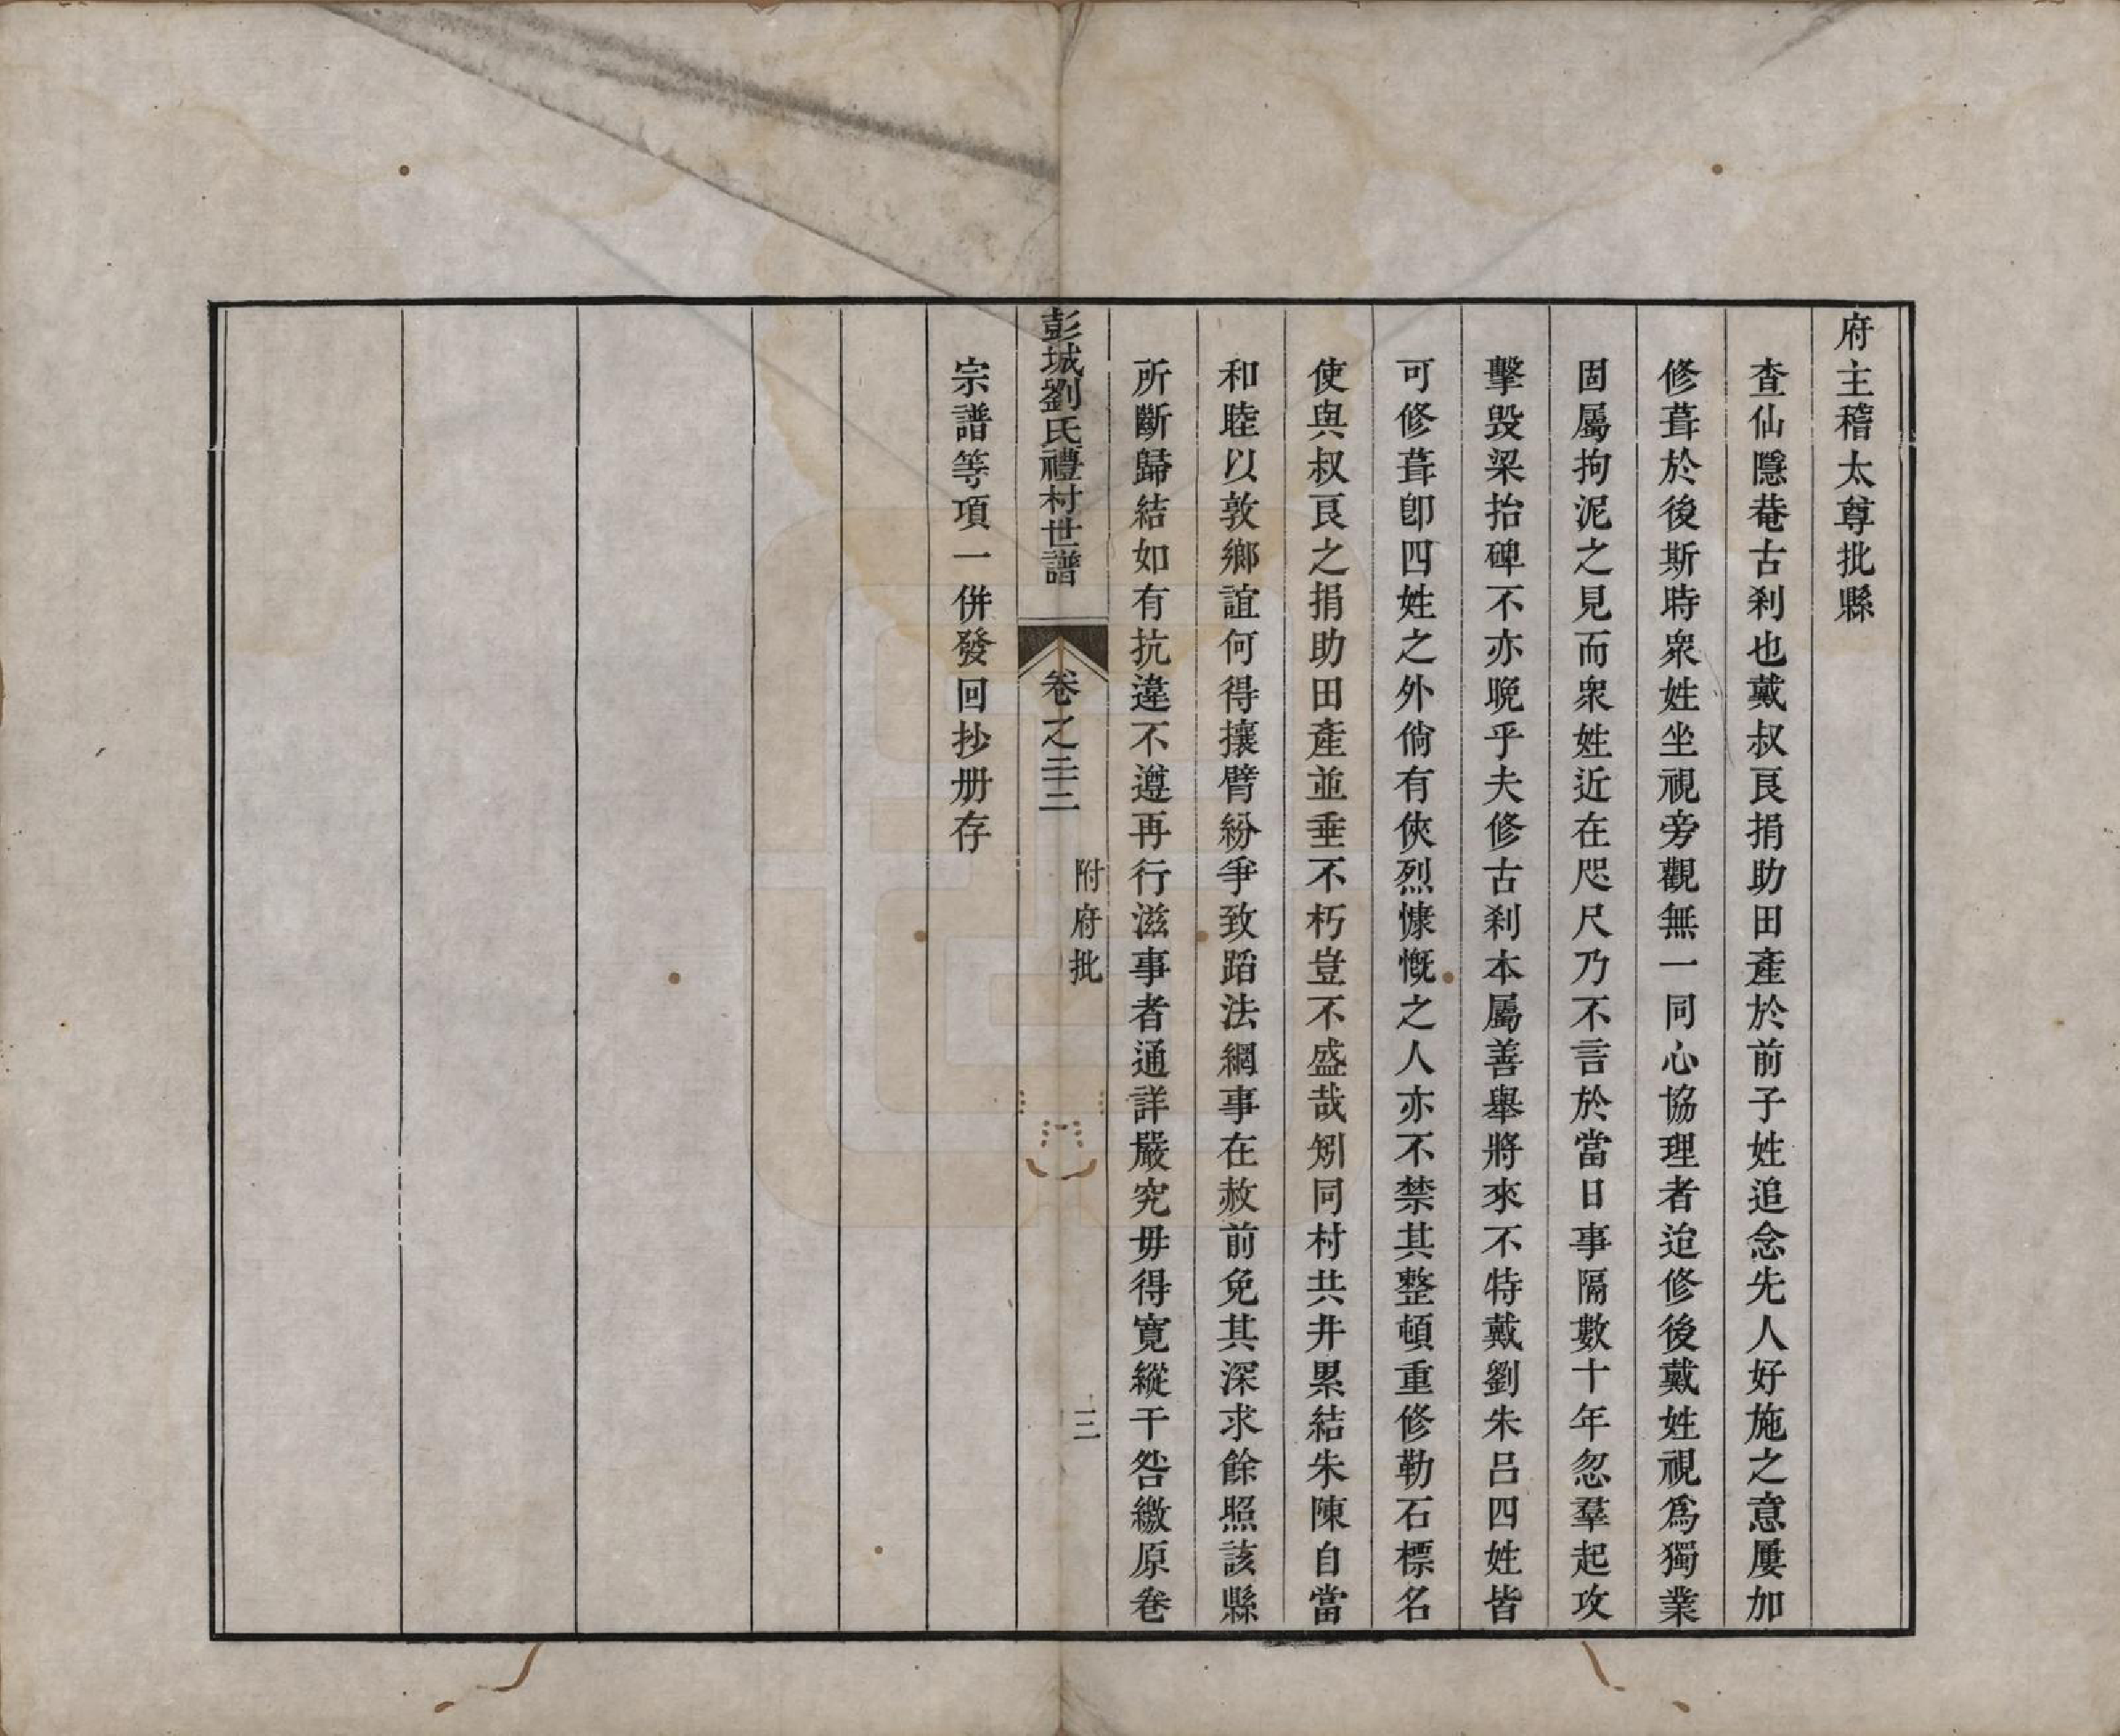 府主稽太尊批縣
查仙隱菴古剎也戴叔艮捐助田產於前子姓追念先人好施之意屢加
修葺於後斯時衆姓坐視旁觀無一同心協理者迨修後戴姓視爲獨業
固屬拘泥之見而衆姓近在咫尺乃不言於當日事隔數十年忽羣起攻
擊毀梁抬碑不亦晚乎夫修古剎本屬善舉將來不特戴劉朱呂四姓皆
可修葺卽四姓之外倘有俠烈慷慨之人亦不禁其整頓重修勒石標名
使與叔艮之捐助田產並垂不朽豈不盛哉矧同村共井累結朱陳自當
和睦以敦鄉誼何得攘臂紛爭致蹈法網事在赦前免其深求餘照該縣
所斷歸結如有抗違不遵再行滋事者通詳嚴究毋得寬縱干咎繳原卷
彭城劉氏禮村世譜
卷之二十三
附府批
三
宗譜等項一併發回抄册存